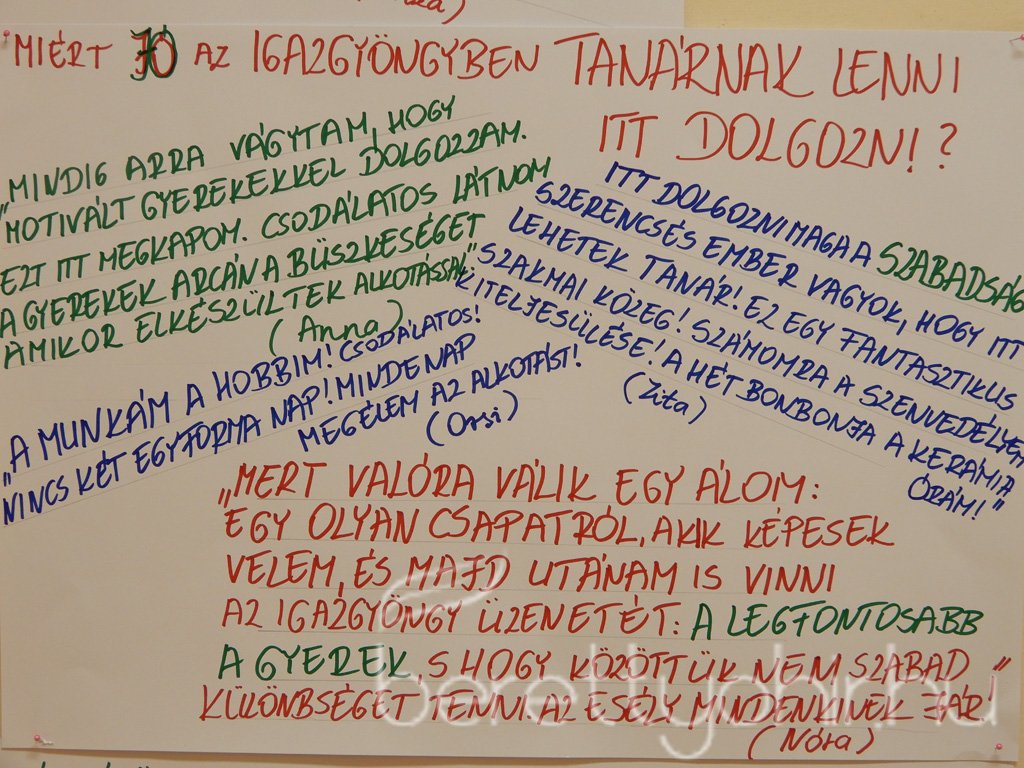 MIÉRT JÓ AZ IGAZGYÖNGYBEN TANÁRNAK LENNI
ITT DOLGOZNI!?
„MINDIG ARRA VÁGYTAM, HOGY
MOTIVÁLT GYEREKEKKEL DOLGOZZAM.
EZT ITT MEGKAPOM. CSODÁLATOS LÁTNOM
A GYEREKEK ARCÁN A BÜSZKESÉGET
AMIKOR ELKÉSZÜLTEK ALKOTÁSSAL."
(Anna)
ITT DOLGOZNI MAGA A SZABADSÁG
SZERENCSÉS EMBER VAGYOK, HOGY ITT
LEHETEK TANÁR! EZ EGY FANTASZTIKUS
SZAKMAI KÖZEG! SZÁMOMRA A SZENVEDÉLYEM
KITELJESÜLÉSE! A HÉT BONBONJA A KERÁMIA
ÓRÁM!"
(Zita)
„A MUNKÁM A HOBBIM! CSODÁLATOS!
NINCS KÉT EGYFORMA NAP! MINDENAP
MEGÉLEM AZ ALKOTÁST!
(Orsi)
„MERT VALÓRA VÁLIK EGY ÁLOM:
EGY OLYAN CSAPATRÓL, AKIK KÉPESEK
VELEM, ÉS MAJD UTÁNAM IS VINNI
AZ IGAZGYÖNGY ÜZENETÉT: A LEGFONTOSABB
A GYEREK, S HOGY KÖZÖTTÜK NEM SZABAD
KÜLÖNBSÉGET TENNI. AZ ESÉLY MINDENKINEK JÁR!"
(Nóra)
berettyohir.hu